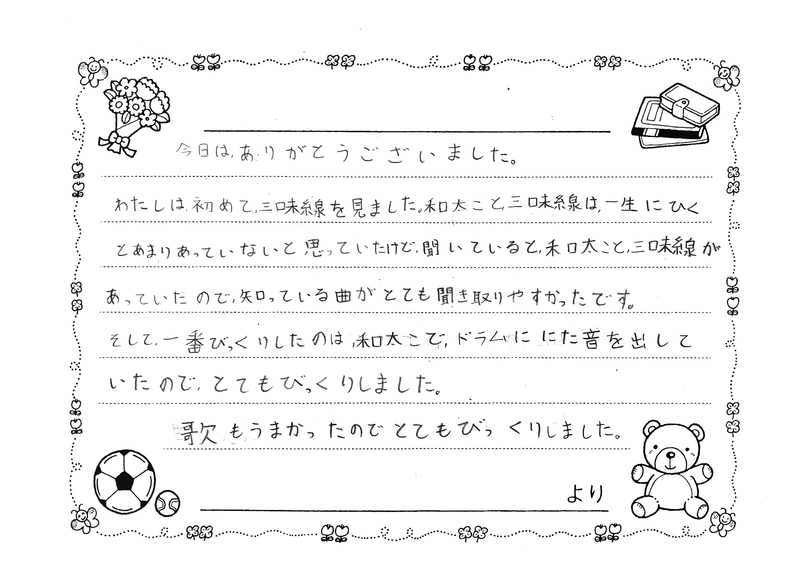 今日は,ありがとうございました。
わたしは,初めて,三味線を見ました。和太こと,三味線は,一生にひく
とあまりあっていないと思っていたけど,聞いていると,和太こと,三味線が
あっていたので,知っている曲がとても聞き取りやすかったです。
そして,一番びっくりしたのは,和太こで,ドラムににた音を出して
いたので,とてもびっくりしました。
歌もうまかったのでとてもびっくりしました。
より